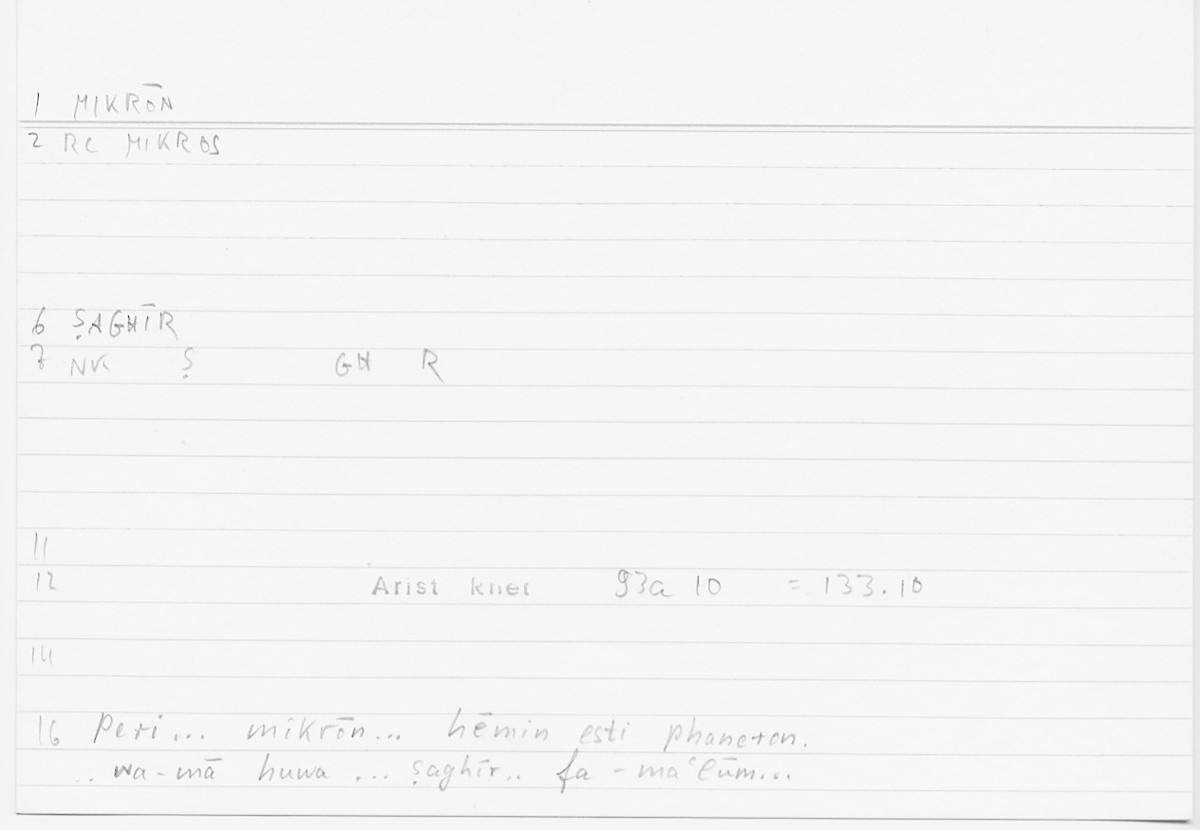 1 MIKRŌN
2 RC MIKROS
6 ṢAGHĪR
7 NK Ṣ GH R
11
12 Arist 93a 10 = 133.10
14
16 Peri... mikrōn... hēmin esti phaneron.
.. wa-mā huwa ... ṣaghīr.. fa-maʿlūm...